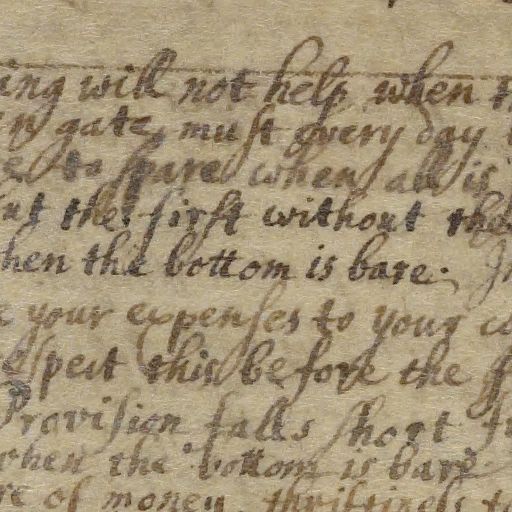 ing will not help when
gate, must every day
to spare when all is
at the first without the
hen the bottom is bare. In
your expenses to your
espect this before the
Provision falls short
when the bottom is bare
of money, thriftiness